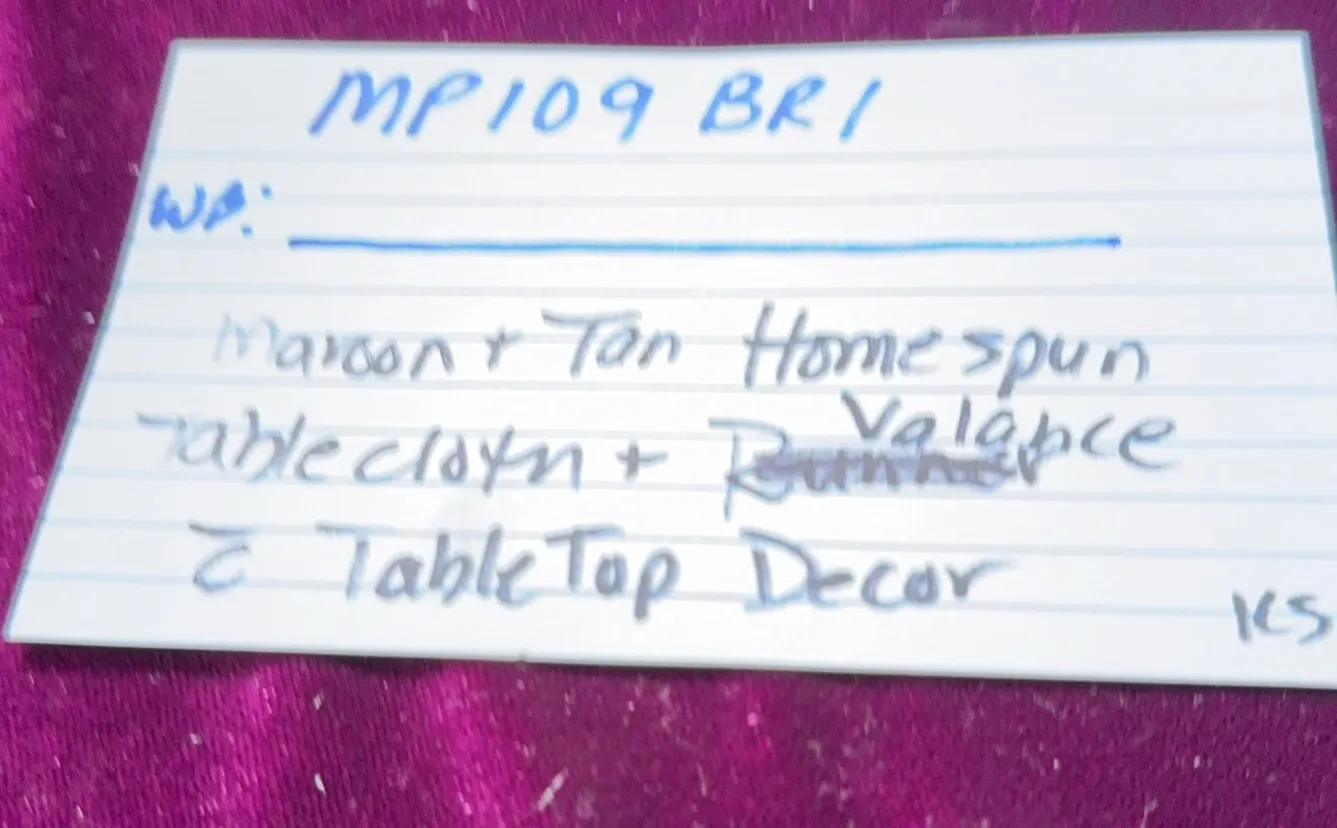 MP109 BR1
WB:
Maroon + Tan Homespun
Tablecloth + Valance
c̄ Table Top Decor
KS